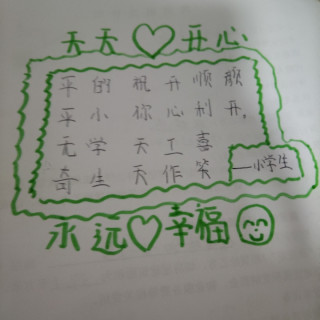 天天♡开心
平平无奇
的小学生
祝你天天
开心工作
顺利喜笑
颜开,
——小学生
永远♡幸福